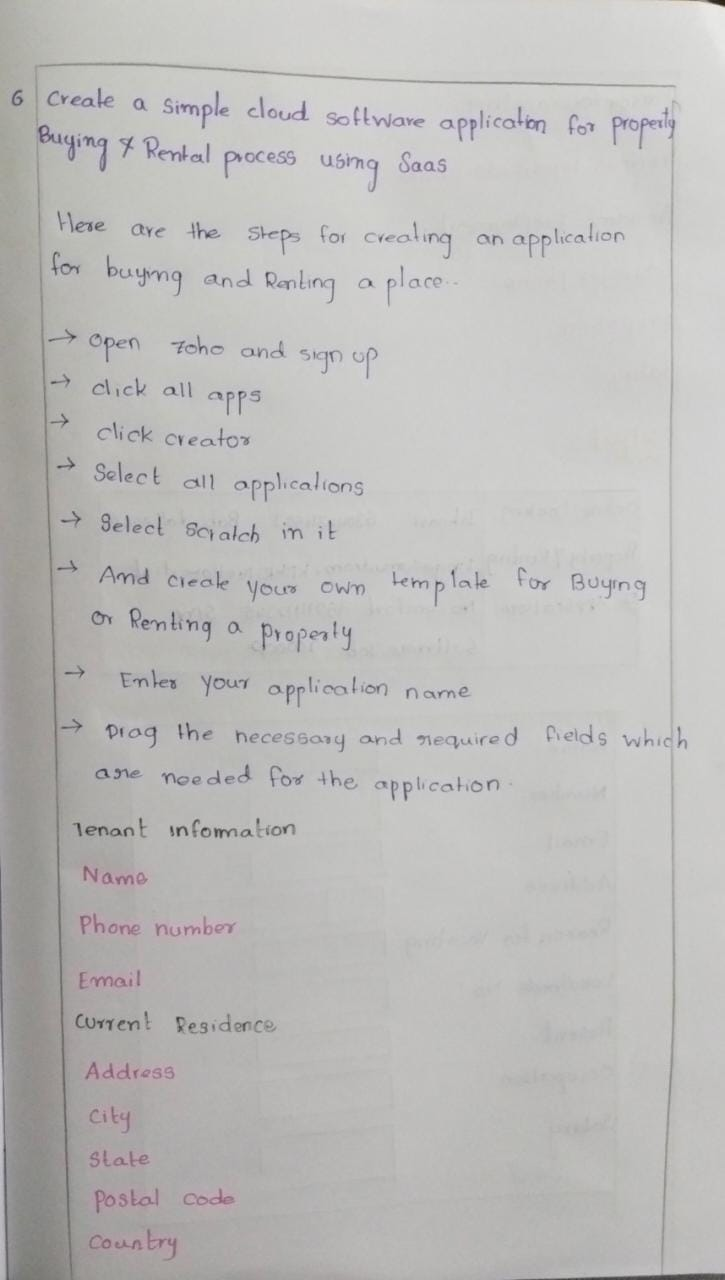 6 Create a simple cloud software application for property
Buying & Rental process using Saas
Here are the steps for creating an application
for buying and Renting a place..
→ Open zoho and sign up
→ click all apps
→ click creator
→ Select all applications
→ Select Scratch in it
→ And create your own template for Buying
or Renting a property
→ Enter your application name
→ Drag the necessary and required fields which
are needed for the application.
Tenant information
Name
Phone number
Email
Current Residence
Address
City
State
Postal code
Country